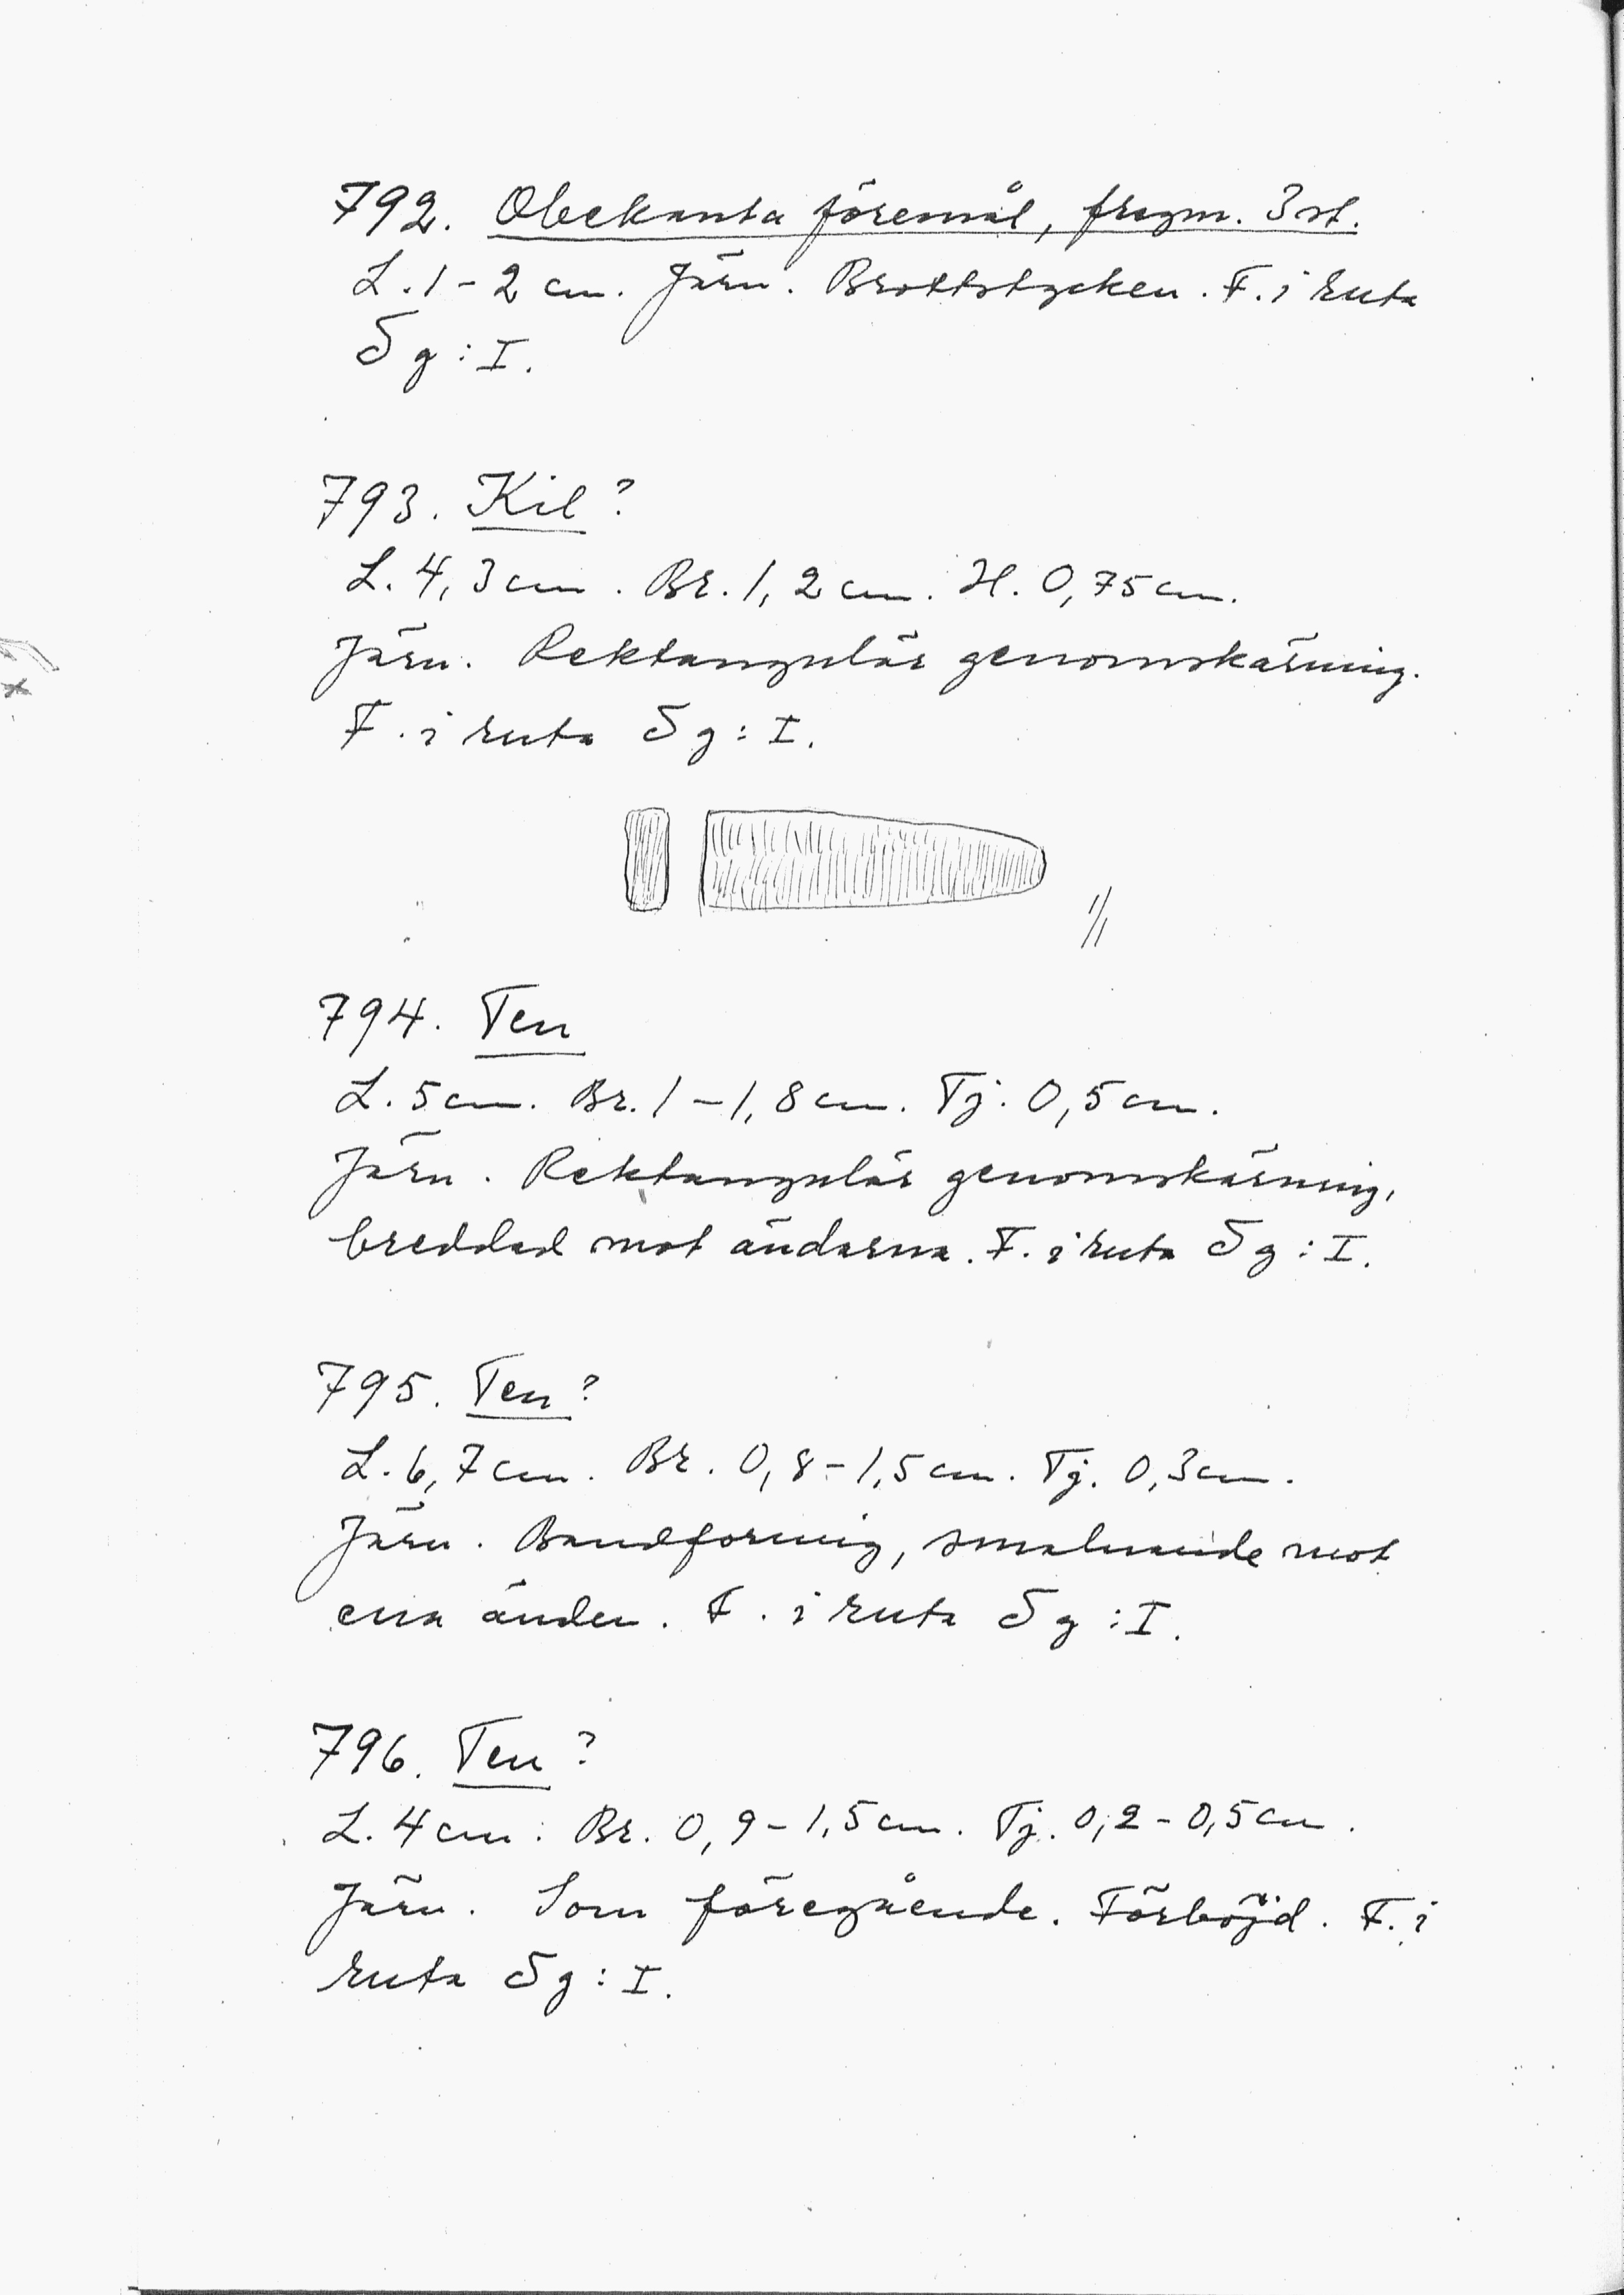 792. Obekanta föremål, fragm. 3 st.
L. 1-2 cm. Järn. Brottstycken. F. i ruta
5 g : I.
793. Kil ?
L. 4,3 cm. Br. 1,2 cm. H. 0,75 cm.
Järn. Rektangulär genomskärning.
F. i ruta 5 g : I.
1/1
794. Ten
L. 5 cm. Br. 1-1,8 cm. Tj. 0,5 cm.
Järn. Rektangulär genomskärning,
breddad mot ändarna. F. i ruta 5 g : I.
795. Ten ?
L. 6,7 cm. Br. 0,8-1,5 cm. Tj. 0,3 cm.
Järn. Bandformig, smalnande mot
ena änden. F. i ruta 5 g : I.
796. Ten ?
L. 4 cm. Br. 0,9-1,5 cm. Tj. 0,2-0,5 cm.
Järn. Som föregående. Förböjd. F. i
ruta 5 g : I.